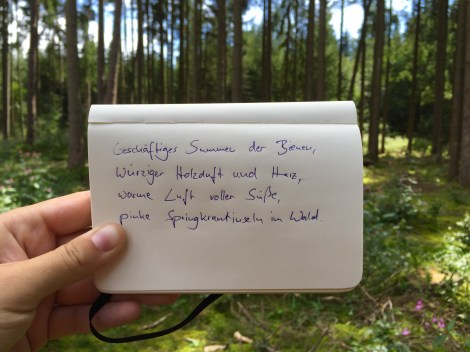 Geschäftiges Summen der Bienen,
Würziger Holzduft und Harz,
warme Luft voller Süße,
pinke Springkrautinseln im Wald.